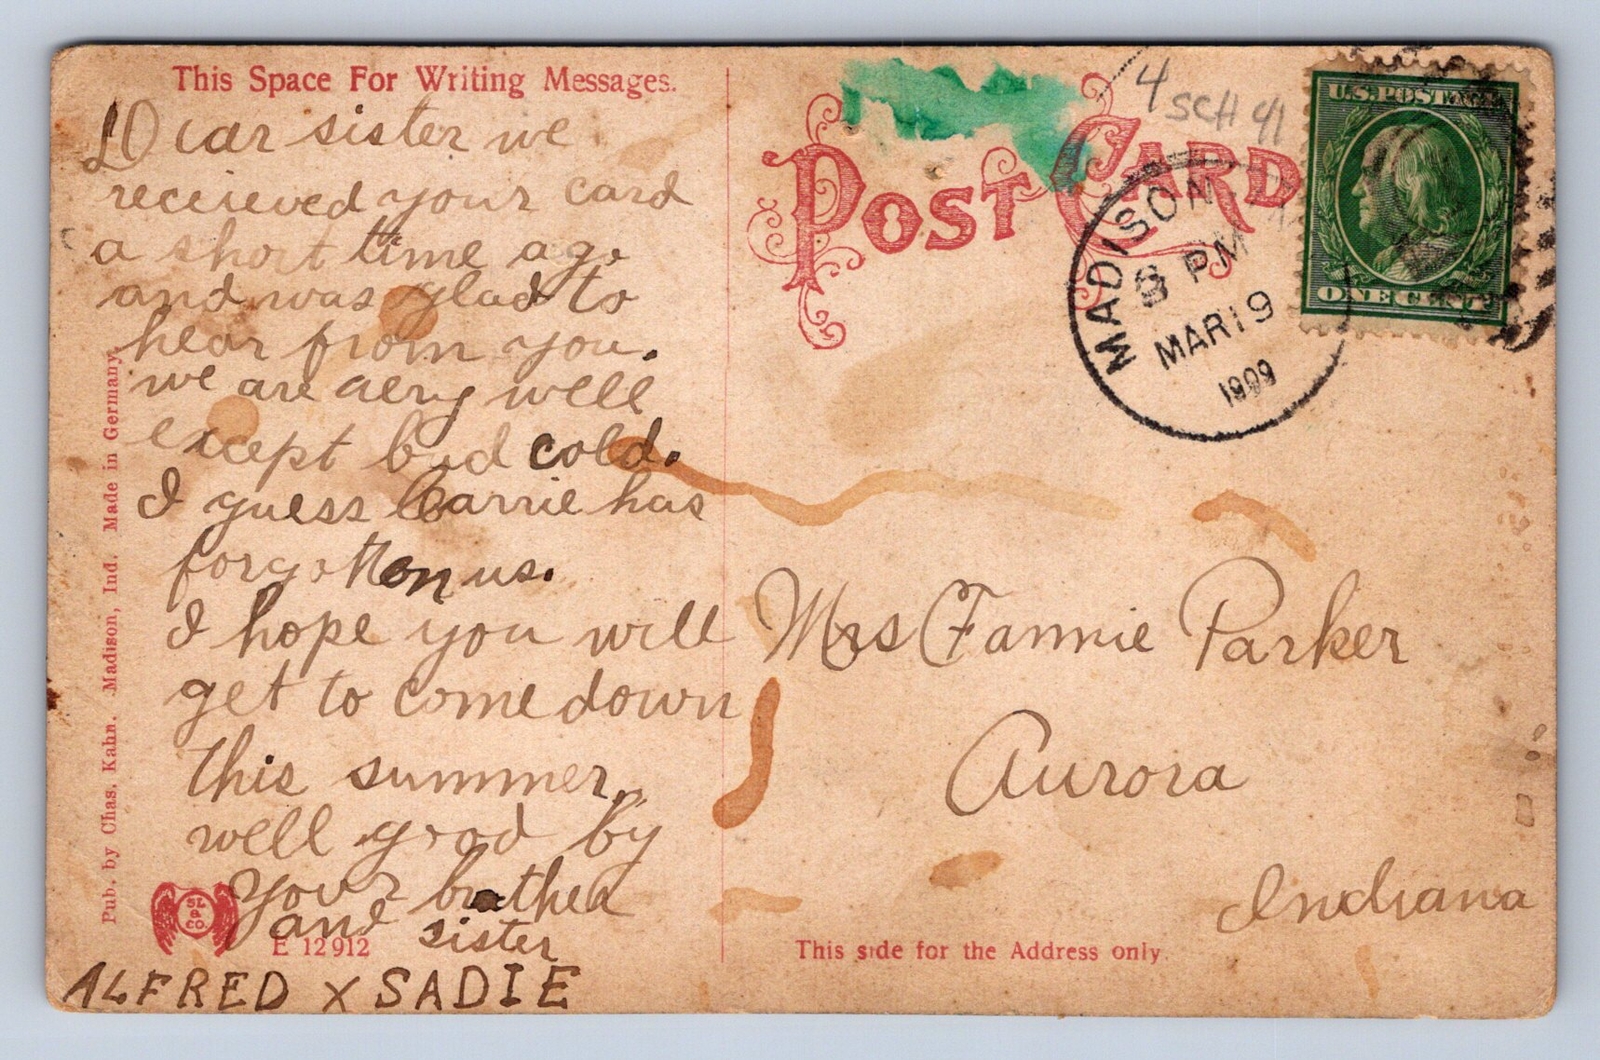 This Space For Writing Messages.
Dear sister we
recieved your card
a short time ago
and was glad to
hear from you.
we are very well
except bad cold.
I guess Carrie has
forgotten us.
I hope you will
get to come down
this summer.
well good by
your brother
and sister
ALFRED X SADIE
Pub. by Chas. Kahn. Madison, Ind. Made in Germany
SL
&
CO.
E 12912
POST CARD
4
SCH 41
MADISON
8 PM
MAR 19
1909
U.S. POSTAGE
ONE CENT
Mrs Fannie Parker
Aurora
Indiana
This side for the Address only